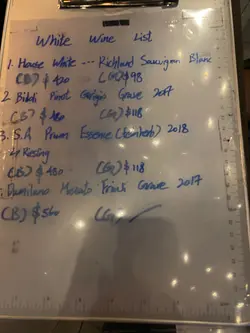 White Wine List
1. House White --- Richland Sauvignon Blanc
(B) $ 420 (G) $98
2. Bidoli Pinot Grigio Grave 2017
(B) $ 480 (G) $118
3. S.A Prum Essence 2018
Resling
(B) $ 480 (G) $118
Moscato Friuli Grave 2017
(B) $ 560 (G)